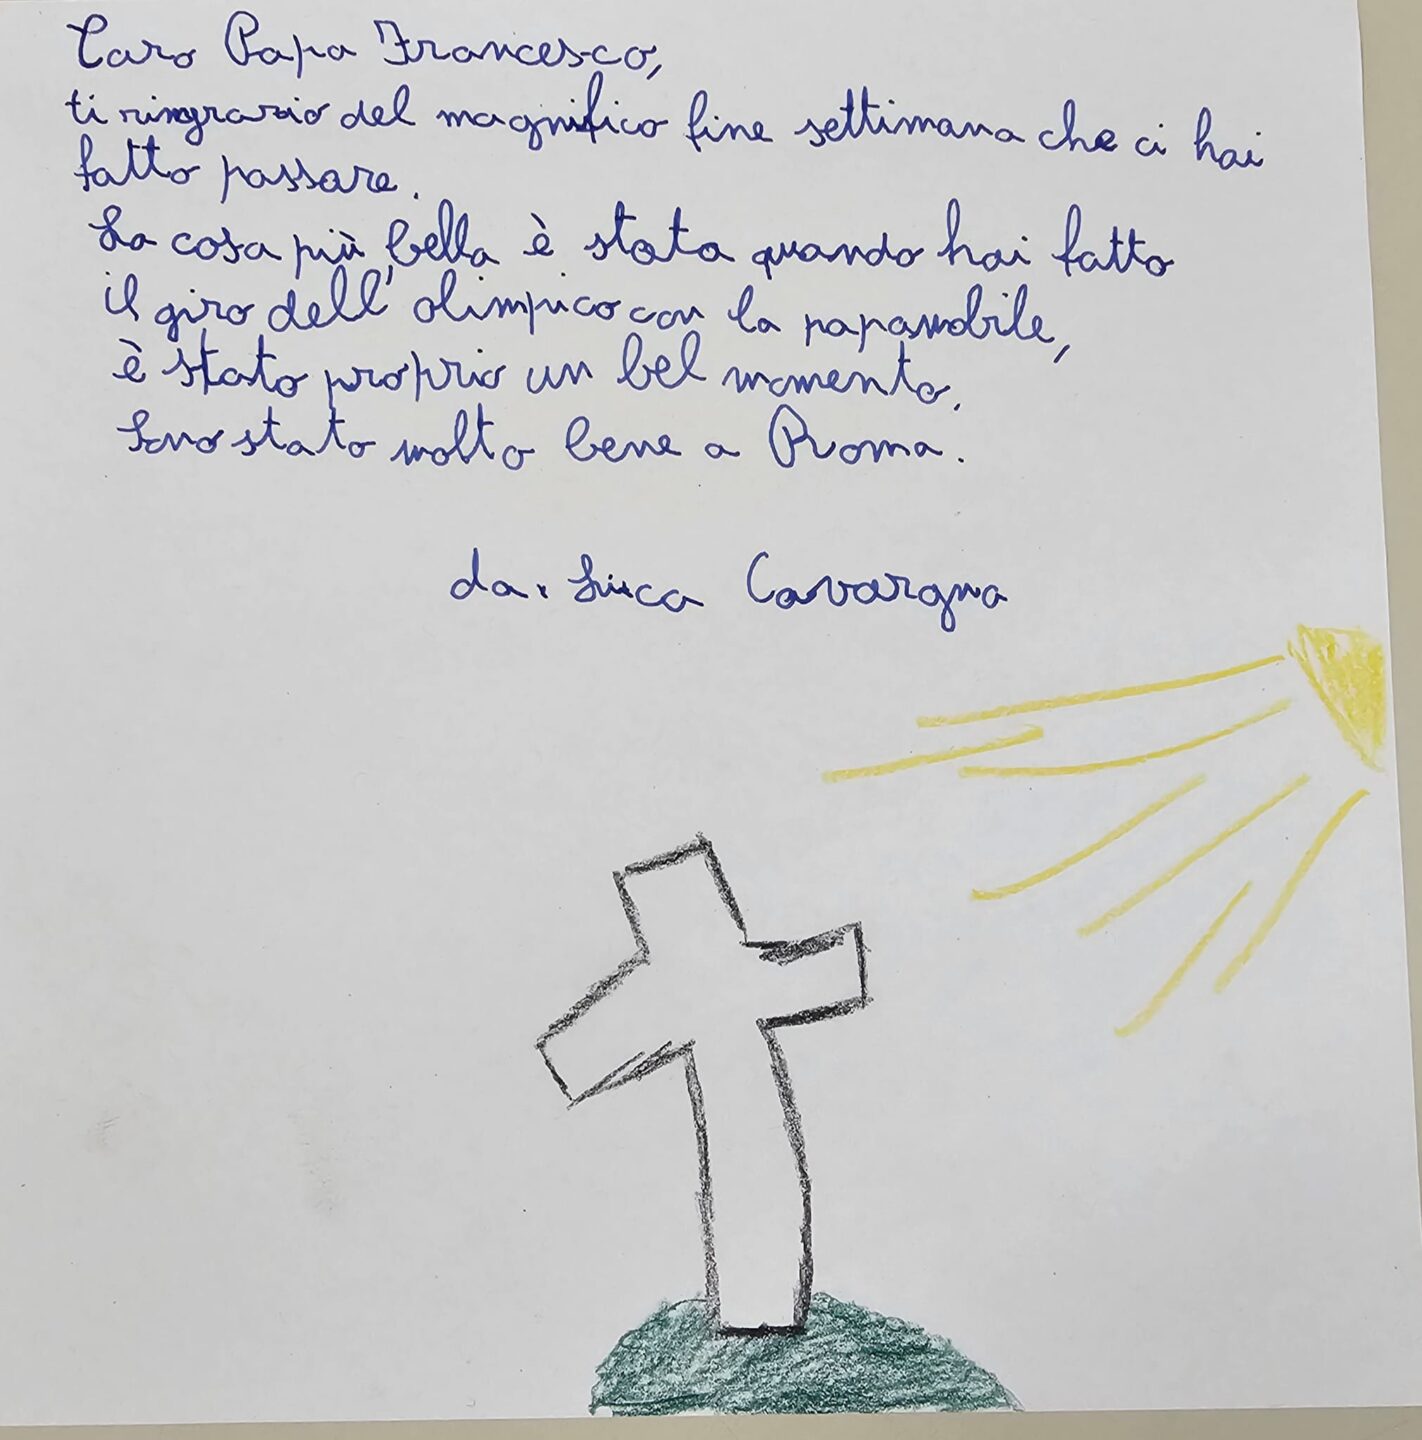 Caro Papa Francesco,
ti ringrazio del magnifico fine settimana che ci hai
fatto passare.
La cosa più bella è stata quando hai fatto
il giro dell'olimpico con la papamobile,
è stato proprio un bel momento.
Sono stato molto bene a Roma.
da: Luca Cavargna